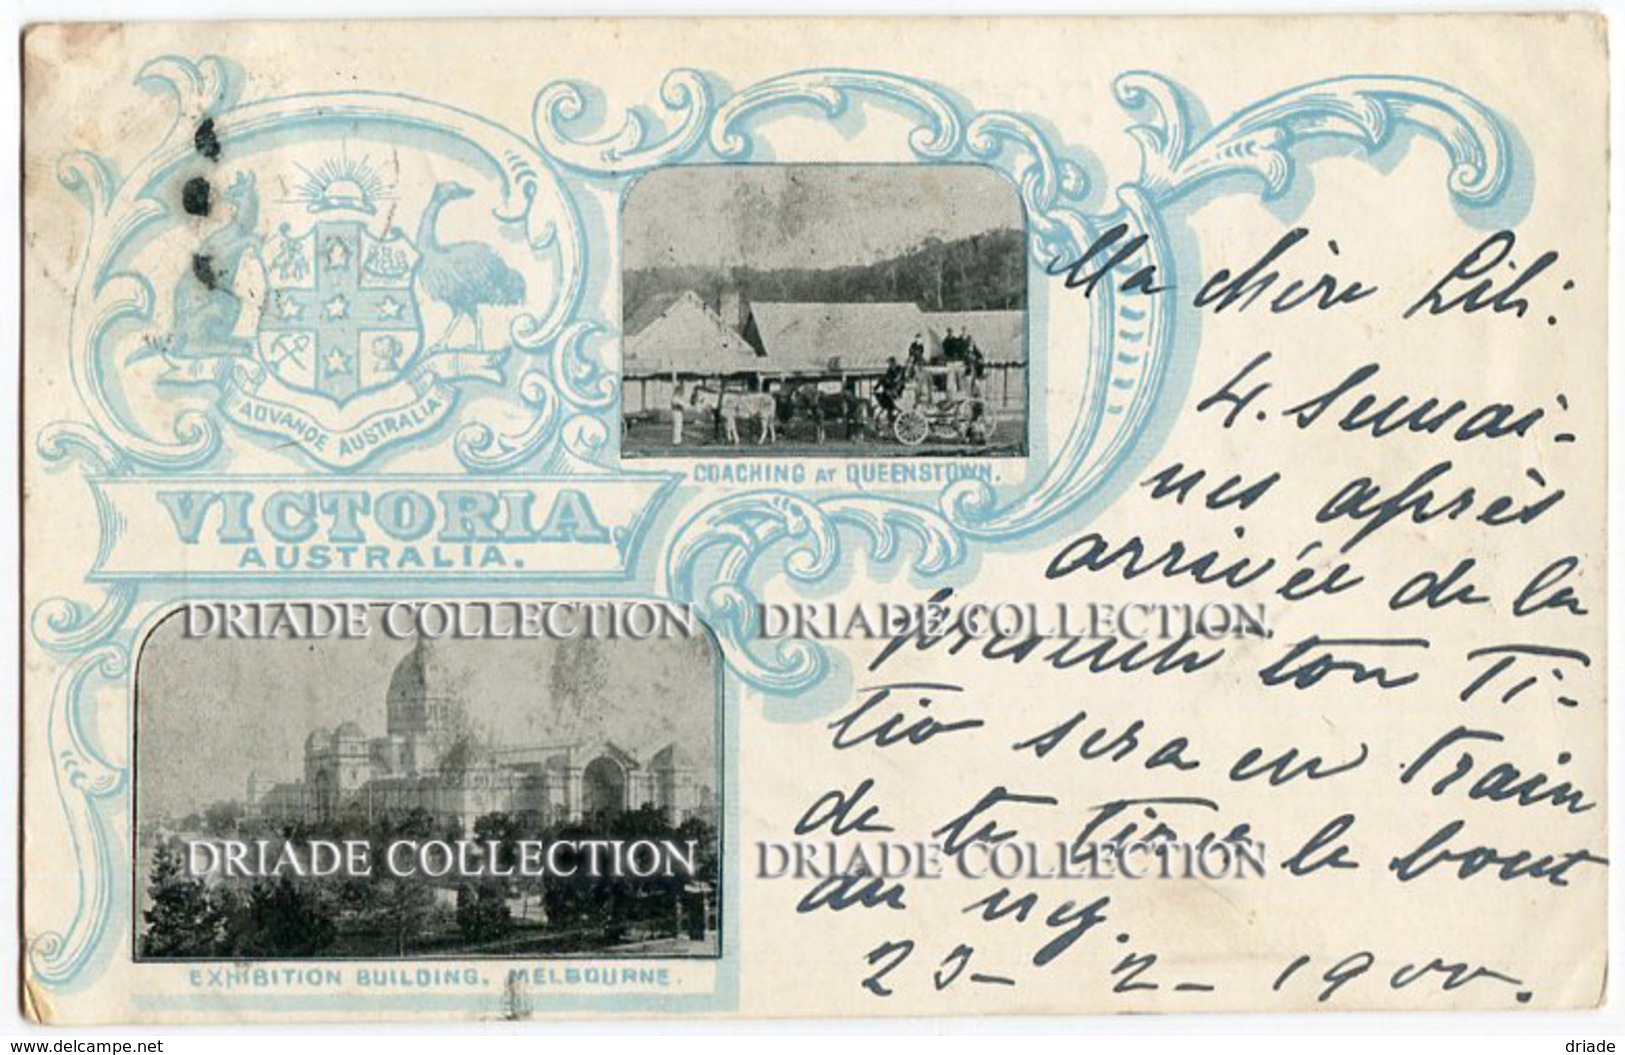 ADVANCE AUSTRALIA
VICTORIA.
AUSTRALIA.
COACHING AT QUEENSTOWN.
EXHIBITION BUILDING. MELBOURNE.
Ma chère Lili:
4. Semai-
nes après
arrivée de la
présente ton Ti-
tio sera en train
de te tirer le bout
du nez.
23-2-1900.
DRIADE COLLECTION
DRIADE COLLECTION
DRIADE COLLECTION
DRIADE COLLECTION
www.delcampe.net
driade